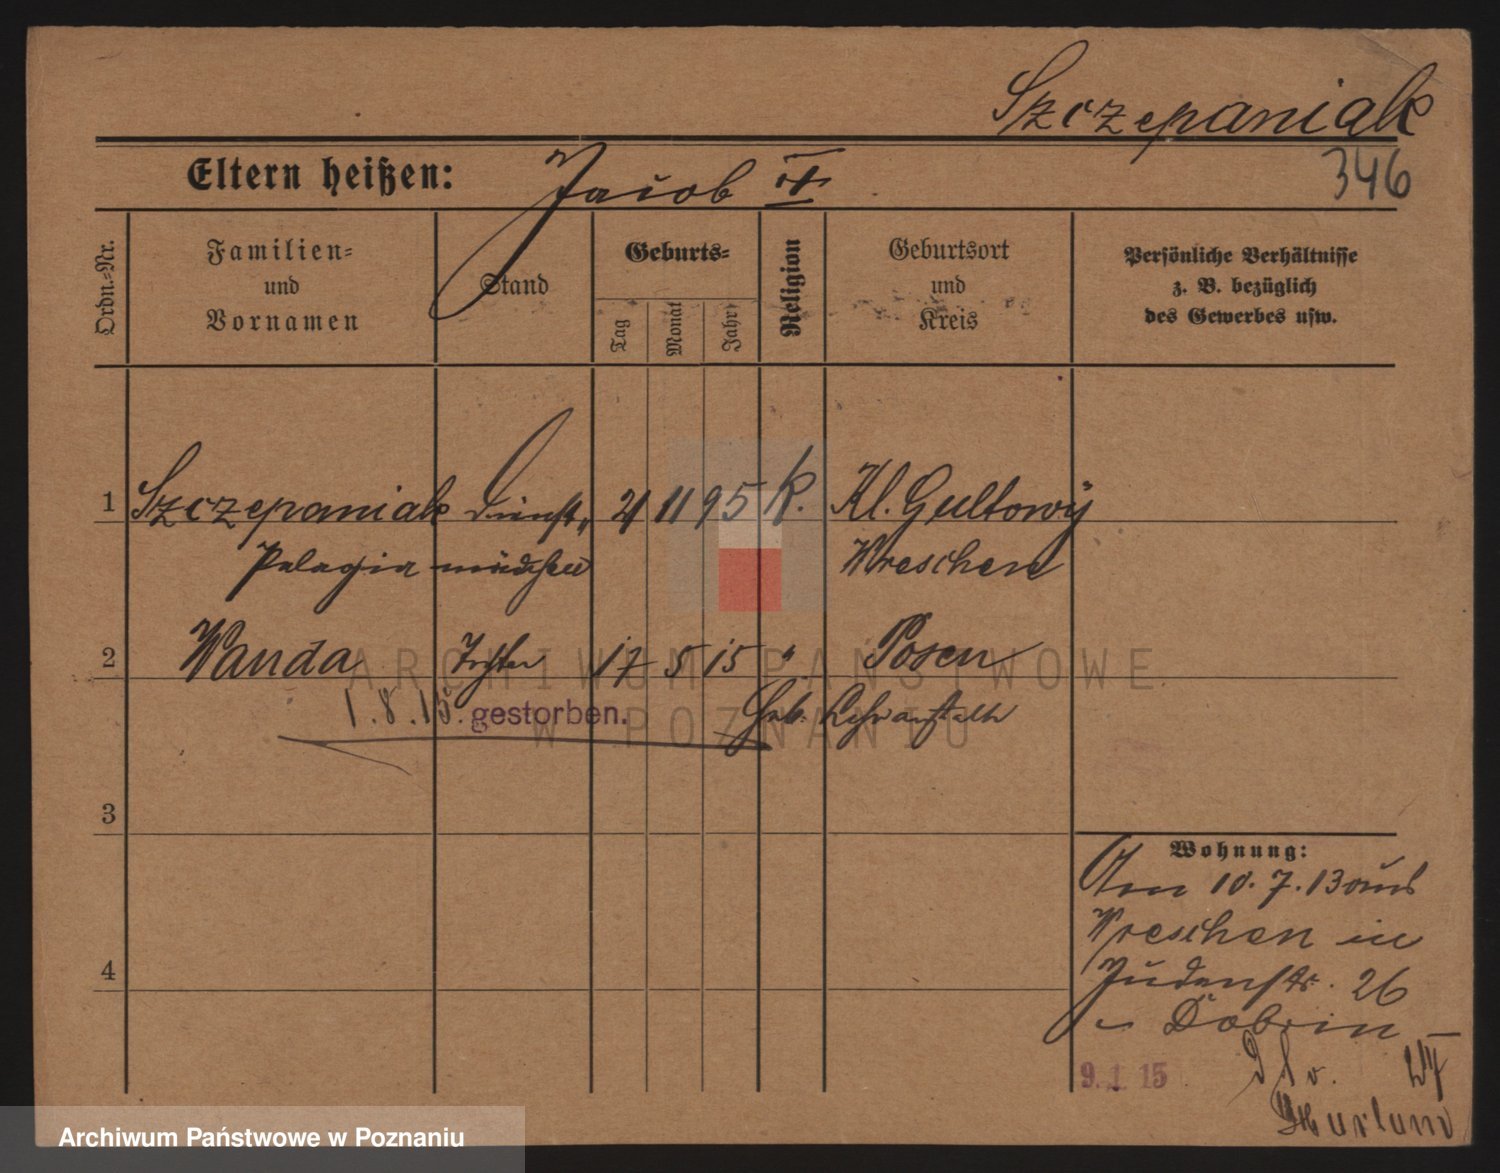 Szczepaniak
Eltern heißen: Jacob
346
Ordn.-Nr.
Familien-
und
Vornamen
Stand
Geburts-
Tag
Monat
Jahr
Religion
Geburtsort
und
Kreis
Persönliche Verhältnisse
z. B. bezüglich
des Gewerbes usw.
1 Szczepaniak Dienst- 21 11 95 k. Kl. Gultowy
Pelagia mädchen Wreschen
2 Wanda Tochter 17 5 15 " Posen
1.8.15. gestorben. Heb. Lehranstalt
3
4
Wohnung:
Am 10.7.13 aus
Wreschen in
Judenstr. 26
Dobrin
9. 1. 15
ARCHIWUM PAŃSTWOWE
W POZNANIU
Archiwum Państwowe w Poznaniu